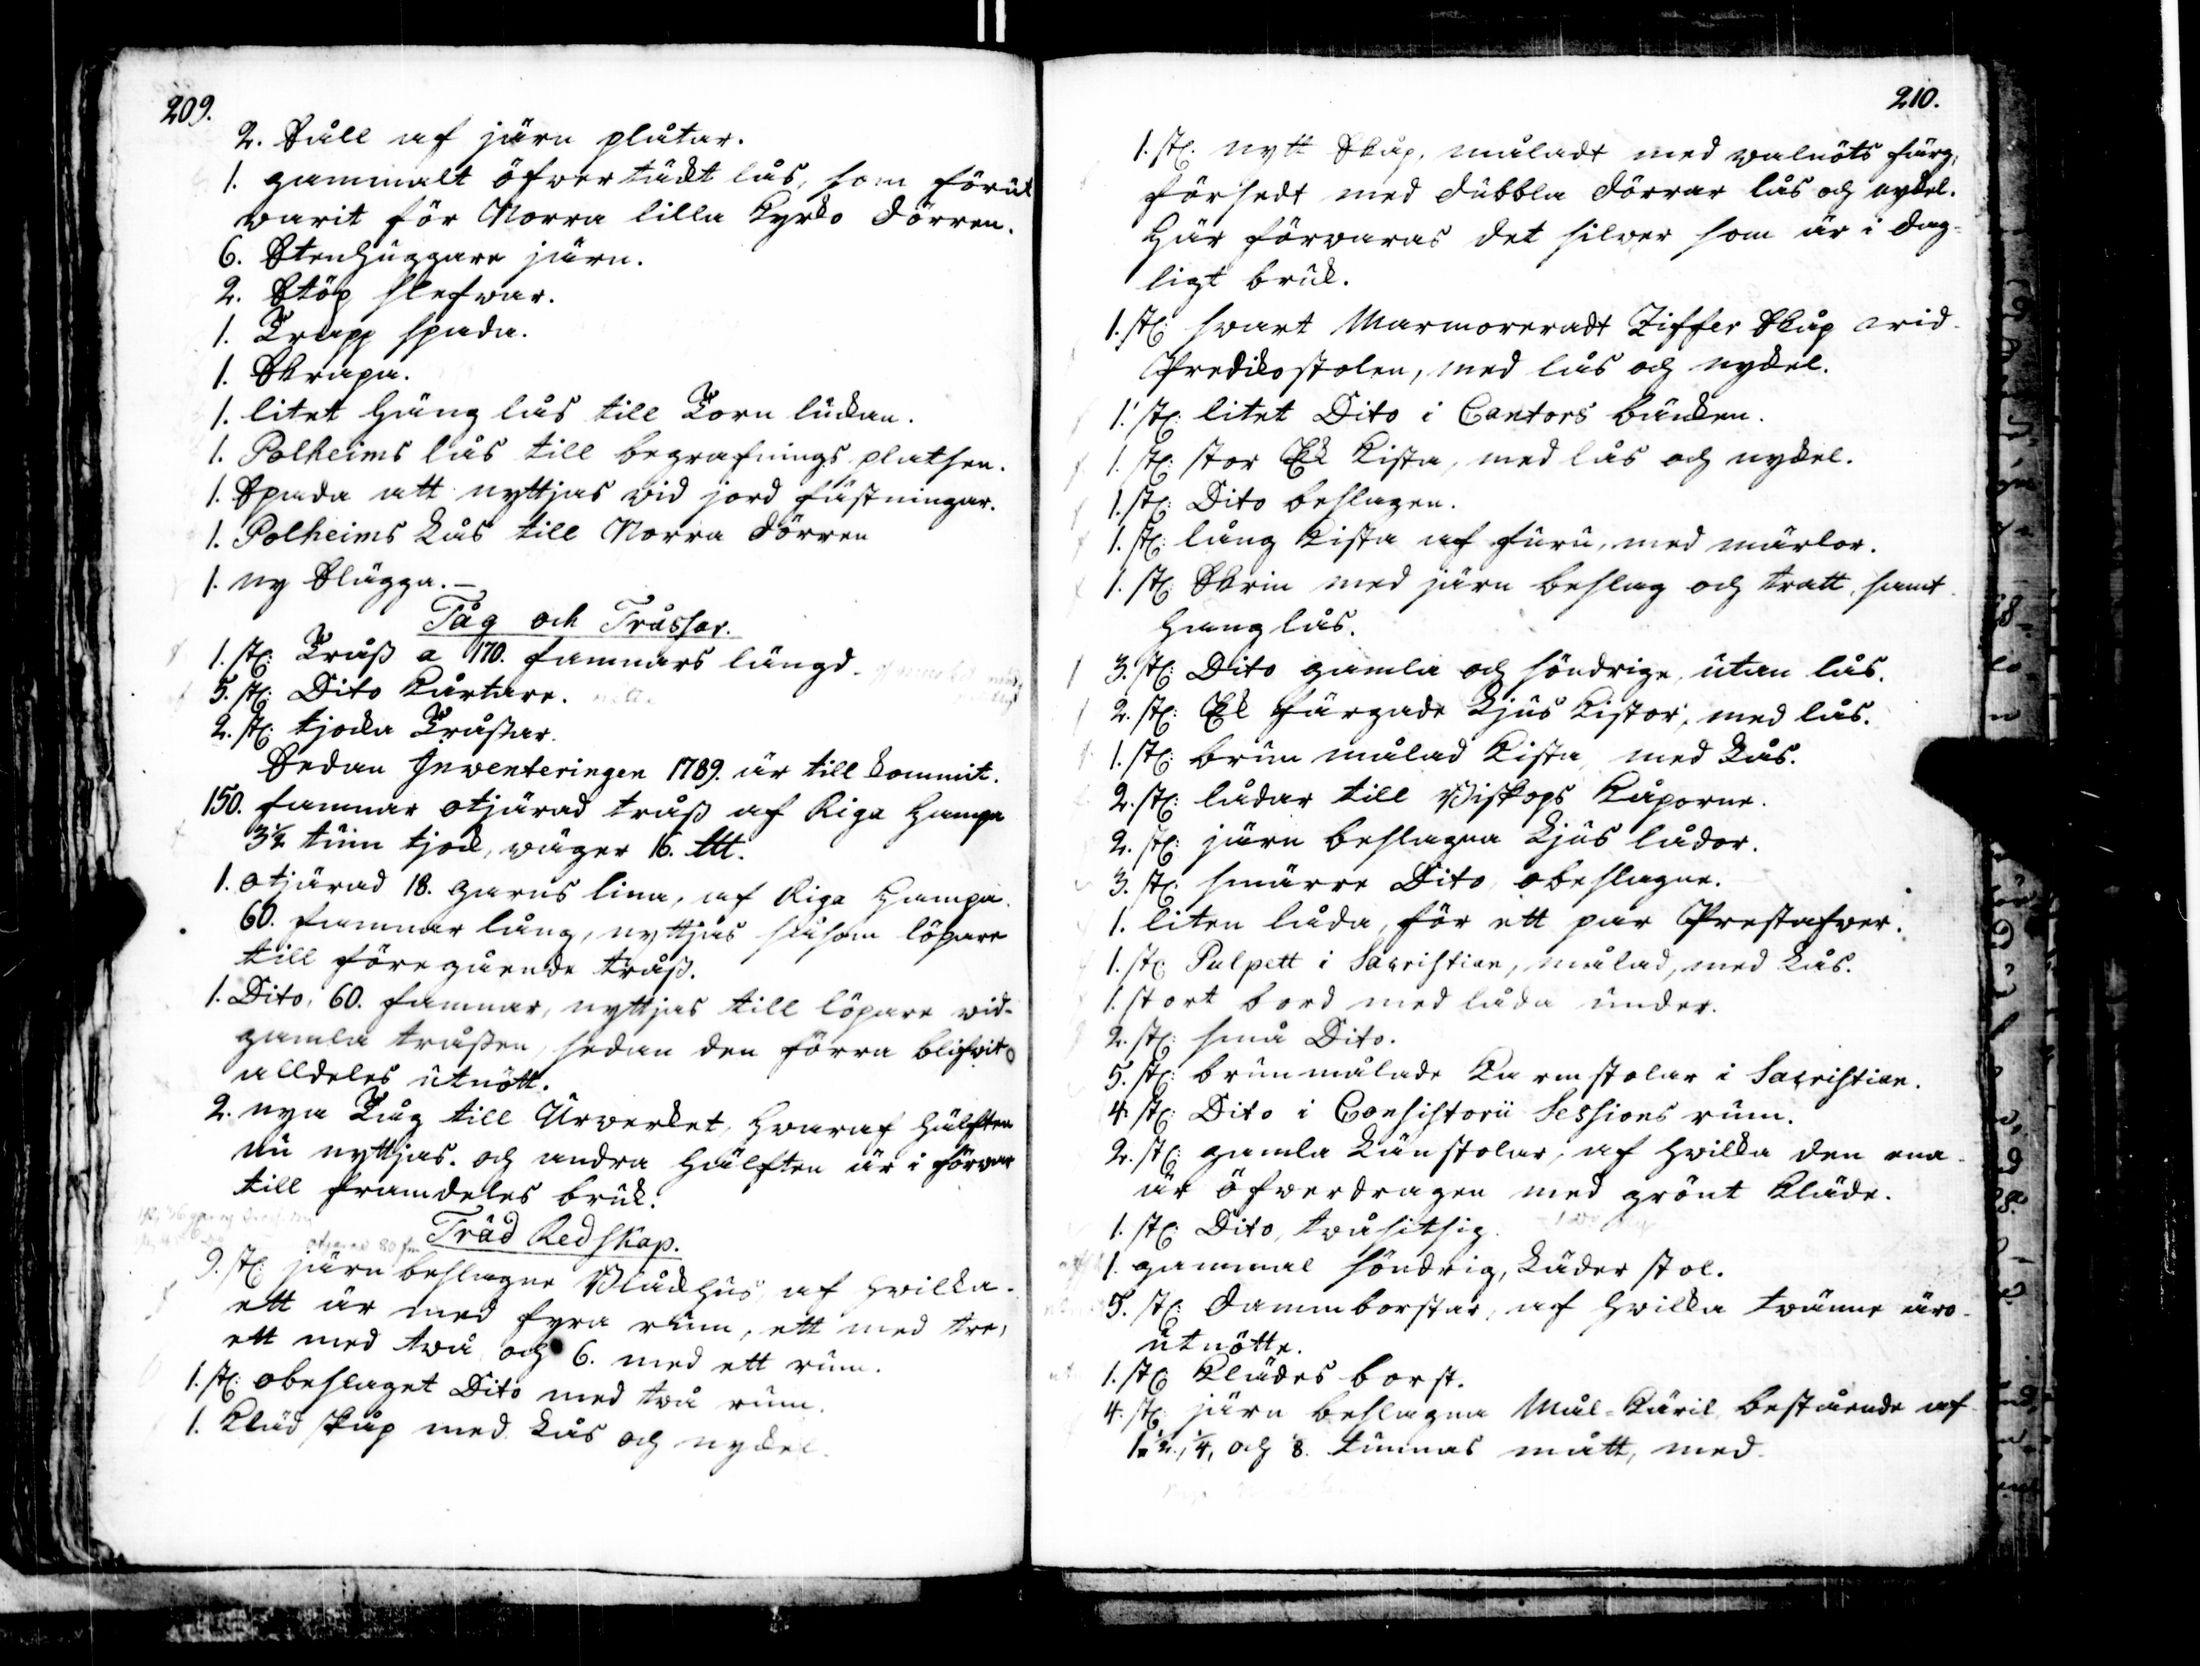 209.
2. Såll af järn plåtar.
1. gammalt öfvertäckt lås, som förut
varit för Norra lilla Kyrko dörren.
6. Stenhuggare järn.
2. Stöp slefvar.
1. Trapp spada.
1. Skrapa.
1. litet häng lås till Torn luckan.
1. Polheims lås till begrafnings platsen.
1. Spada att nyttjas vid jord fästningar.
1. Polheims Lås till Norra dörren
1. ny Slägga. –
Tåg och Tråssar.
1. st: Tråß a 170. famnars längd.
5. st: Dito kårtare.
2. st: tjocka Tråßar.
Sedan Inventeringen 1789. är till kommit.
150. famnar otjärad tråß af Riga Hampa
3½ tum tjock, väger 16. ℔.
1. otjärad 18. garns lina, af Riga Hampa.
60. famnar lång, nyttjas såsom löpare
till föregående tråß.
1. Dito, 60. famnar, nyttjas till löpare vid
gamla tråßen, sedan den förra blifvit
alldeles utnött.
2. nya Tåg till Urverket, hvaraf hälften
nu nyttjas. och andra hälften är i förvar
till framdeles bruk.
Träd Redskap.
9. st: järn beslagne Blåckhus, af hvilka
ett är med fyra rum, ett med tre,
ett med två och 6. med ett rum.
1. st: obeslaget Dito med två rum.
1. Kläd skåp med Lås och nyckel.
210.
1. st: nytt Skåp, måladt med valnöts färg,
försedt med dubbla dörrar lås och nyckel.
Här förvaras det silver som är i dag=
ligt bruk.
1. st: svart Marmoreradt Ziffer Skåp vid
Predikostolen, med lås och nyckel.
1. st: litet Dito i Cantors bäncken.
1. st: stor Ek Kista, med lås och nyckel.
1. st: Dito beslagen.
1. st: lång Kista af furu, med märlor.
1. st: Skrin med järn beslag och tratt, samt
hänglås.
3. st: Dito gamla och söndrige, utan lås.
2. st: Ek färgade Ljus Kistor, med lås.
1. st: brun målad Kista, med Lås.
2. st: lådar till Biskops Kåporne.
2. st: järn beslagna Ljus lådor.
3. st: smärre Dito, obeslagne.
1. liten låda, för ett par Prestafver.
1. st: Pulpett i Sacristian, målad, med Lås.
1. stort bord med låda under.
2. st: små Dito.
5. st: brunmålade Karmstolar i Sacristian.
4. st: Dito i Consistorii Sessions rum.
2. st: gamla Länstolar, af hvilka den ena
är öfverdragen med grönt kläde.
1. st: Dito, tvåsitsig.
1. gammal söndrig, Läder stol.
5. st: dammborstar, af hvilka tvänne äro
utnötte.
1. st: Klädes borst.
4. st: järn beslagna Mål=Käril, bestående af
1. ½, ¼, och ⅛. tunnas mått, med